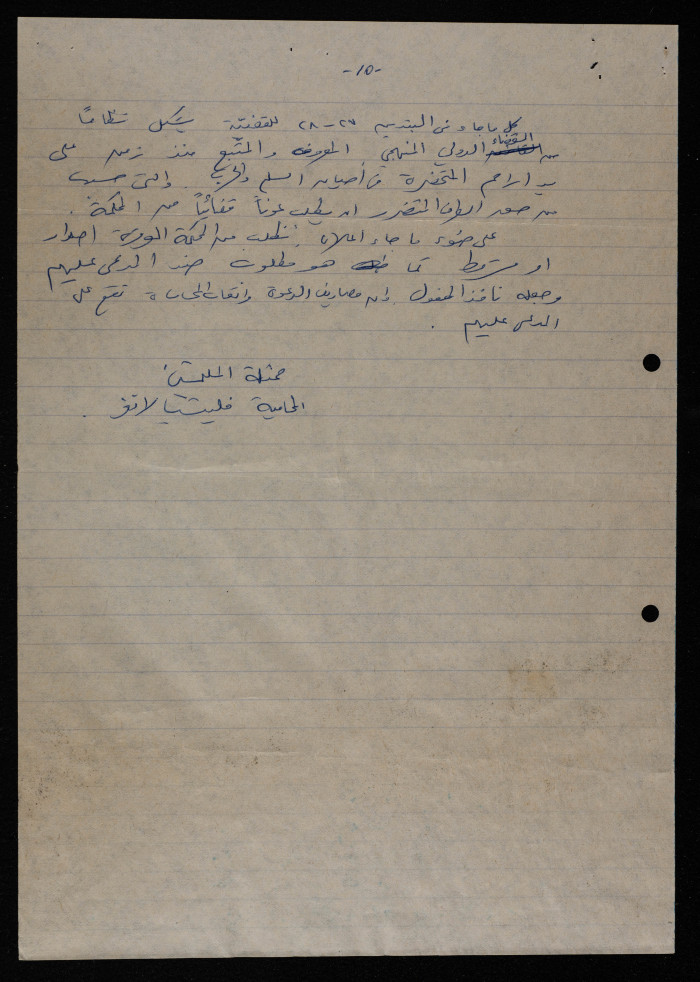 -١٥-
كل ما جاء في البندين ٢٧-٢٨ للقضية يشكل نظامًا
من القضاء الدولي المنهجي المعروف والمتّبع منذ زمن على
يد الامم المتحضرة في أحيان السلم والحرب. والتي حسب
من حق الطرف المتضرر ان يطلب عونًا قضائيًا من المحكمة.
على ضوء ما جاء اعلاه، نطلب من المحكمة الموقرة اصدار
امر كما هو مطلوب ضد المدعى عليهم
وجعله نافذ المفعول وان مصاريف الدعوة واتعاب المحاماة تقع على
المدعى عليهم.
ممثلة الملتمسين
المحامية فليتسيا لانغر.